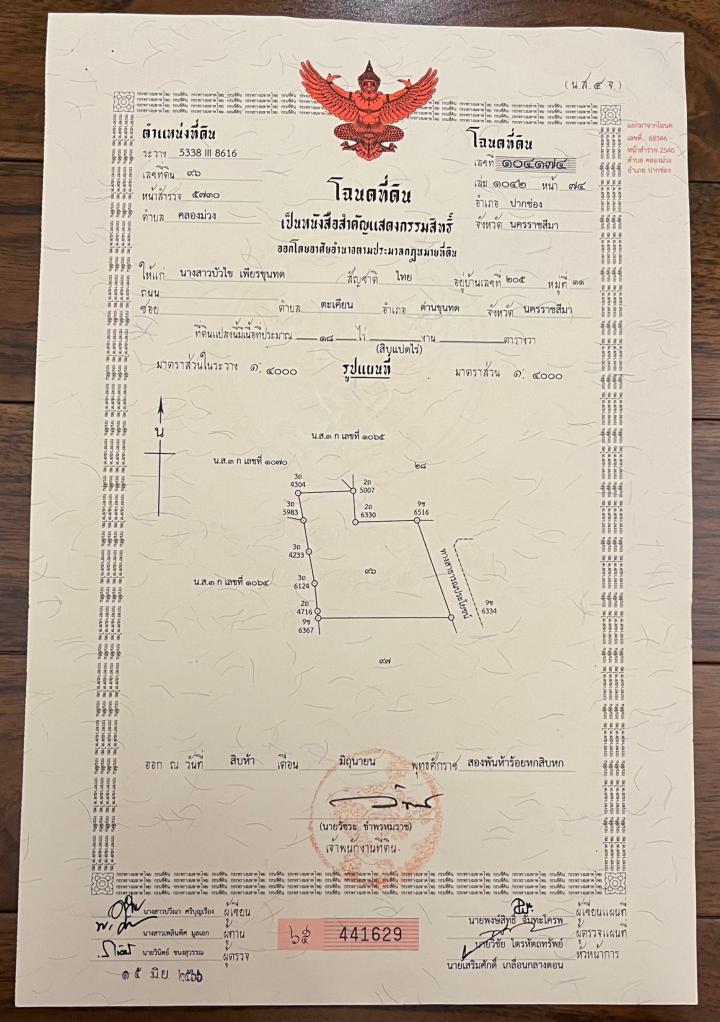 (น.ส.๔ จ.)
ตำแหน่งที่ดิน
ระวาง 5338 III 8616
เลขที่ดิน ๙๖
หน้าสำรวจ ๕๗๓๐
ตำบล คลองม่วง
โฉนดที่ดิน
เลขที่ ๑๐๔๑๗๔
เล่ม ๑๐๔๒ หน้า ๗๔
อำเภอ ปากช่อง
จังหวัด นครราชสีมา
แยกมาจากโฉนด
เลขที่. 68346
หน้าสำรวจ 2540
ตำบล คลองม่วง
อำเภอ ปากช่อง
โฉนดที่ดิน
เป็นหนังสือสำคัญแสดงกรรมสิทธิ์
ออกโดยอาศัยอำนาจตามประมวลกฎหมายที่ดิน
ให้แก่ นางสาวบัวไข เพียรขุนทด สัญชาติ ไทย อยู่บ้านเลขที่ ๒๐๕ หมู่ที่ ๑๑
ถนน
ซอย ตำบล ตะเคียน อำเภอ ด่านขุนทด จังหวัด นครราชสีมา
ที่ดินแปลงนี้มีเนื้อที่ประมาณ ๑๘ ไร่ งาน ตารางวา
(สิบแปดไร่)
มาตราส่วนในระวาง ๑: ๔๐๐๐ รูปแผนที่ มาตราส่วน ๑: ๔๐๐๐
น
น.ส.๓ ก เลขที่ ๑๐๖๕
น.ส.๓ ก เลขที่ ๑๐๗๐
๒๘
3ถ
4304
2ถ
5007
3ถ
5983
2ถ
6330
9ซ
6516
3ถ
4233
๙๖
ทางสาธารณประโยชน์
น.ส.๓ ก เลขที่ ๑๐๖๔
3ถ
6124
2ถ
4716
9ซ
6334
9ซ
6367
๙๗
ออก ณ วันที่ สิบห้า เดือน มิถุนายน พุทธศักราช สองพันห้าร้อยหกสิบหก
(นายวัชระ ขำพรหมราช)
เจ้าพนักงานที่ดิน
นางสาวปวีณา ศรีบุญเรือง ผู้เขียน
นางสาวเพลินพิศ มูลเอก ผู้ทาน
นายวินิตย์ ชนงสุวรรณ ผู้ตรวจ
๑๕ มิย ๒๕๖๖
๖๕ 441629
นายพงษ์สิทธิ์ ฉันทะโครพ ผู้เขียนแผนที่
นายวิชัย ไตรหัตถทรัพย์ ผู้ตรวจแผนที่
นายเสริมศักดิ์ เกลื่อนกลางดอน หัวหน้าการ